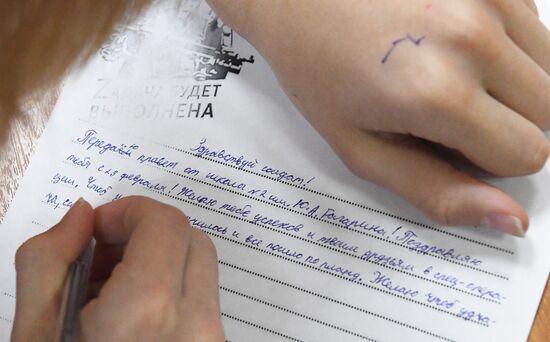 ZАДАЧА БУДЕТ
ВЫПОЛНЕНА
Здравствуй солдат!
Передаём привет от школа №2 им. Ю.А. Гагарина! Поздравляю
тебя с 23 февраля! Желаю тебе успехов и твоим друзьям в спец-опера-
ции. Чтоб и всё пошло по плану. Желаю чтоб